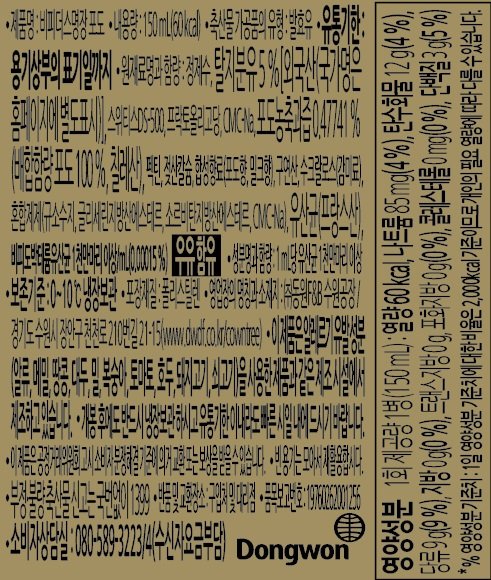 •제품명 : 비피더스명장 포도 •내용량 : 150 mL(60 kcal) •축산물가공품의 유형 : 발효유 •유통기한 :
용기상부의 표기일까지 •원재료명과 함량 : 정제수, 탈지분유 5 % [외국산(국가명은
홈페이지에 별도표시)], 스위티스DS-500, 프락토올리고당, CMC-Na, 포도농축과즙 0.47741 %
(배합함량 포도 100 %, 칠레산), 펙틴, 젖산칼슘, 합성향료(포도향, 밀크향), 구연산, 수크랄로스(감미료),
혼합제제(규소수지, 글리세린지방산에스테르, 소르비탄지방산에스테르, CMC-Na), 유산균(프랑스산),
비피도박테륨유산균 1천만마리 이상/mL(0.00015 %) 우유 함유 •성분명과 함량 : 1 mL당 유산균 1천만마리 이상
•보존기준 : 0~10℃ 냉장보관 •포장재질 : 폴리스틸렌 •영업장의 명칭과 소재지 : (주)동원F&B 수원공장 /
경기도 수원시 장안구 천천로 210번길 21-15(www.dwdf.co.kr/cowntree) •이 제품은 알레르기 유발성분
(알류, 메밀, 땅콩, 대두, 밀, 복숭아, 토마토, 호두, 돼지고기, 쇠고기)을 사용한 제품과 같은 제조시설에서
제조하고 있습니다. •개봉 후에도 반드시 냉장보관하시고 유통기한 이내라도 빠른 시일 내에 드시기 바랍니다.
•이 제품은 공정거래위원회 고시 소비자분쟁해결기준에 의거 교환 또는 보상을 받을 수 있습니다. •빈 용기는 모아서 재활용합시다.
•부정·불량축산물 신고는 국번없이 1399 •반품 및 교환장소 : 구입처 및 대리점 •품목보고번호 : 19760262001256
•소비자상담실 : 080-589-3223/4(수신자요금부담) Dongwon
영양성분 1회 제공량 1병(150 mL) : 열량 60 kcal, 나트륨 85 mg(4 %), 탄수화물 12 g(4 %),
당류 9 g(9 %), 지방 0 g(0 %), 트랜스지방 0 g, 포화지방 0 g(0 %), 콜레스테롤 0 mg(0 %), 단백질 3 g(5 %)
*% 영양성분 기준치 : 1일 영양성분 기준치에 대한 비율은 2,000 kcal 기준이므로 개인의 필요 열량에 따라 다를 수 있습니다.